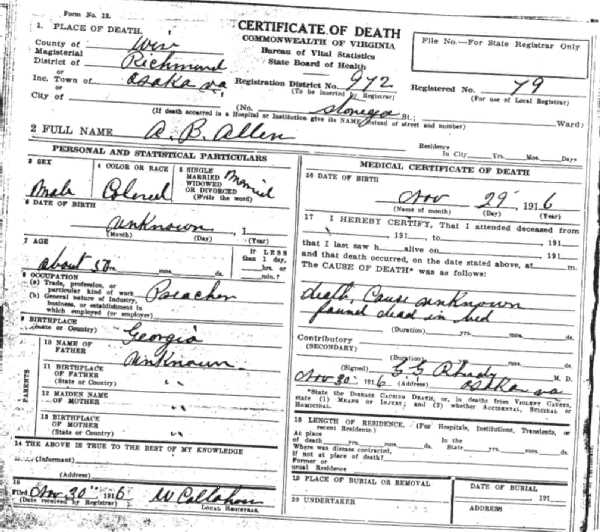 Form No. 12.
CERTIFICATE OF DEATH
COMMONWEALTH OF VIRGINIA
Bureau of Vital Statistics
State Board of Health
File No.—For State Registrar Only
1. PLACE OF DEATH.
County of Wise
Magisterial
District of Richmond
or
Inc. Town of Osaka Va
or
City of
Registration District No. 972
(To be inserted by Registrar)
Registered No. 79
(For use of Local Registrar)
(No. Stonega St.; Ward)
(If death occurred in a Hospital or Institution give its NAME instead of street and number)
2 FULL NAME A. B. Allen
Residence
In City Yrs. Mos. Days
PERSONAL AND STATISTICAL PARTICULARS
3 SEX
Male
4 COLOR OR RACE
Colored
5 SINGLE
MARRIED
WIDOWED
OR DIVORCED
(Write the word)
Married
6 DATE OF BIRTH
unknown, 1
(Month) (Day) (Year)
7 AGE
about 50 mos. ds.
If LESS
than 1 day,
hrs. or
min.?
8 OCCUPATION
(a) Trade, profession, or
particular kind of work
Preacher
(b) General nature of Industry,
business, or establishment in
which employed (or employer)
9 BIRTHPLACE
(State or Country) Georgia
PARENTS
10 NAME OF
FATHER unknown
11 BIRTHPLACE
OF FATHER
(State or Country) " "
12 MAIDEN NAME
OF MOTHER " "
13 BIRTHPLACE
OF MOTHER
(State or Country) " "
14 THE ABOVE IS TRUE TO THE BEST OF MY KNOWLEDGE
(Informant)
(Address)
15
Filed Nov 30" 1916 W Callahan
(Date received by Registrar) LOCAL REGISTRAR
MEDICAL CERTIFICATE OF DEATH
16 DATE OF BIRTH
Nov 29, 1916
(Name of month) (Day) (Year)
17 I HEREBY CERTIFY, That I attended deceased from
, 191 , to , 191
that I last saw h alive on , 191
and that death occurred, on the date stated above, at m.
The CAUSE OF DEATH* was as follows:
death, Cause unknown
found dead in bed
(Duration) yrs. mos. ds.
Contributory
(SECONDARY)
(Duration) yrs. mos. ds.
(Signed) M. D.
Nov 30" 1916 (Address) Osaka Va
*State the DISEASE CAUSING DEATH, or, in deaths from VIOLENT CAUSES,
state (1) MEANS OF INJURY; and (2) whether ACCIDENTAL, SUICIDAL or
HOMICIDAL.
18 LENGTH OF RESIDENCE. (For Hospitals, Institutions, Transients, or
recent Residents.)
At place In the
of death yrs. mos. ds. State yrs. mos. ds.
Where was disease contracted,
if not at place of death?
Former or
usual Residence
19 PLACE OF BURIAL OR REMOVAL
DATE OF BURIAL
191
20 UNDERTAKER
ADDRESS